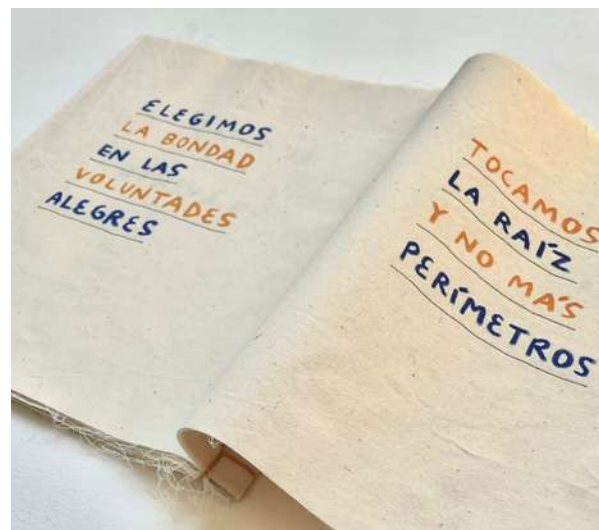 ELEGIMOS
LA BONDAD
EN LAS
VOLUNTADES
ALEGRES
TOCAMOS
LA RAÍZ
Y NO MÁS
PERÍMETROS